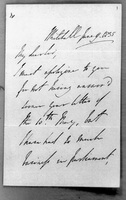 My dear Sir,
I must apologize to you
for not having answered
sooner your letter of
the 10th May, but
I have had so much
business in parliament,